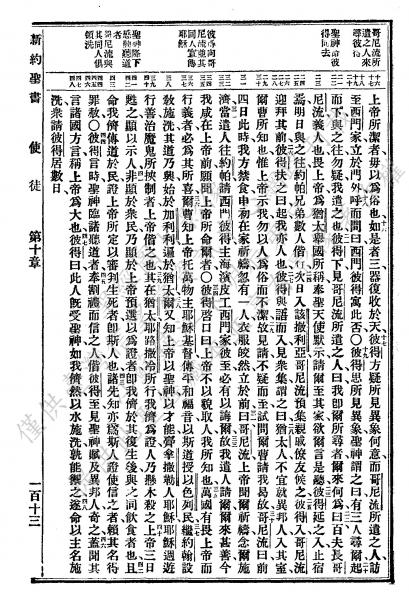 哥尼流所
遣之人來
尋彼得
聖神諭彼
得同去
彼得向哥
尼流並其
同人宣揚
耶穌
聖神降下
感聽道者
哥尼流與
其同人俱
領洗
上帝所潔者毋以爲俗也如是者三器復收於天彼得方疑所見異象何意而哥尼流所遣之人訪
至西門家立於門外呼而問曰西門彼得寓此否〇彼得思所見異象聖神謂之曰有三人尋爾起
而下與之往勿疑我遣之也彼得下見哥尼流所遣之人曰我即爾所尋者爾來何爲曰百夫長哥
尼流義人也畏上帝爲猶太舉國所稱奉聖天使默示請爾至其家欲爾言是聽彼得延之入止宿
焉明日與之往約帕兄弟數人偕行次日入該撒利亞哥尼流預集親戚僚友候之彼得入哥尼流
迎拜其前彼得扶之曰起我亦人也彼得與語而入見衆集謂之曰猶太人不宜就異邦人入其室
爾曹所知也惟上帝示我勿以人爲俗而不潔故見請不疑而至試問爾曹請我曷故哥尼流曰前
四日此時我方禁食申初在家祈禱忽有一人衣服皎然立於前曰哥尼流上帝聞爾祈禱念爾施
濟當遣人往約帕請西門彼得主海濱皮工西門家彼至必有以誨爾故我遣人請爾來甚善今
我咸在上帝前願聞上帝所命爾者〇彼得啓口曰上帝不以貌取人我所知也萬國有畏上帝而
行義者必爲其所喜爾曹知上帝托萬物主耶穌基督傳平和福音以斯道授以色列民繼約翰設
教施洗其道乃興始於加利利遍於猶太爾又知上帝以聖神以才能膏拿撒勒人耶穌耶穌週遊
行善治魔鬼所挾制者上帝偕之也其在猶太耶路撒冷所行我儕爲證人乃懸木殺之上帝三日
甦之顯以示人非顯於衆民乃顯於上帝預選以爲證者即我儕於其復生後與之同飲食者也且
命我儕傳道於民證上帝所定以審判生死者即斯人也諸先知亦爲斯人證使信之者賴其名得
罪赦〇彼得言時聖神臨諸聽道者奉割禮而信之人偕彼得至見聖神賦及異邦人奇之蓋聞其
言諸國方言稱上帝爲大也彼得曰此人既受聖神如我儕然以水施洗孰能禦之遂命以主名施
洗衆請彼得居數日
新約聖書 使徒 第十章 一百十三